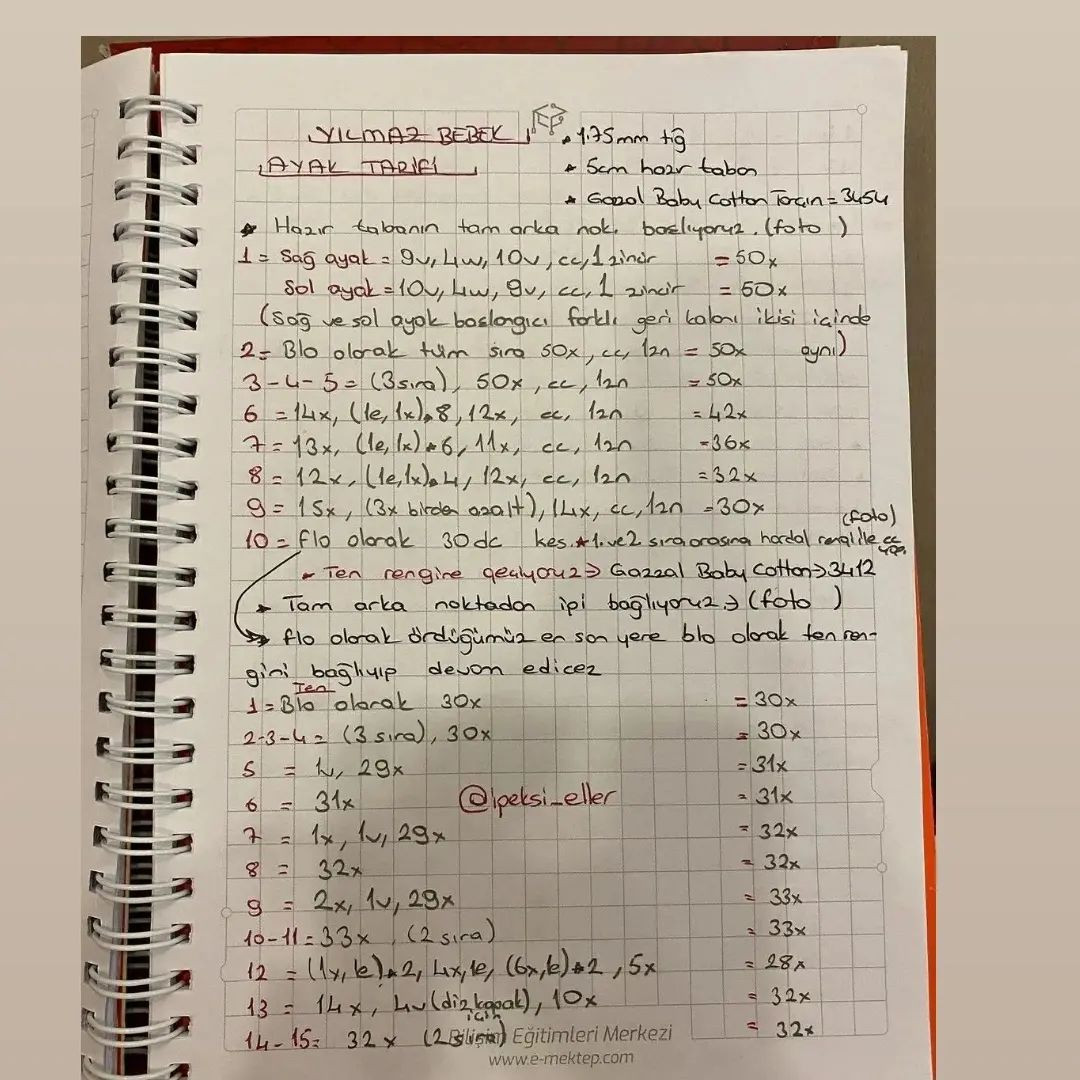 YILMAZ BEBEK
AYAK TARİFİ
• 1.75mm tığ
* 5cm hazır taban
* Gazal Baby Cotton Tarçın = 3454
* Hazır tabanın tam arka nok. başlıyoruz. (foto )
1 = Sağ ayak = 9v, 4w, 10v, cc, 1 zincir = 50x
Sol ayak = 10v, 4w, 9v, cc, 1 zincir = 50x
(Sağ ve sol ayak başlangıcı farklı geri kalanı ikisi içinde aynı)
2 = Blo olarak tüm sıra 50x, cc, 1zn = 50x
3-4-5 = (3 sıra), 50x, cc, 1zn = 50x
6 = 14x, (1e, 1x)*8, 12x, cc, 1zn = 42x
7 = 13x, (1e, 1x)*6, 11x, cc, 1zn = 36x
8 = 12x, (1e, 1x)*4, 12x, cc, 1zn = 32x
9 = 15x, (3x birden azalt), 14x, cc, 1zn = 30x
(foto)
10 = flo olarak 30dc kes. * 1. ve 2 sıra arasına hardal rengi ile cc yap.
* Ten rengine geçiyoruz → Gazzal Baby Cotton → 3412
* Tam arka noktadan ipi bağlıyoruz → (foto )
flo olarak ördüğümüz en son yere blo olarak ten ren-
gini bağlıyıp devam edicez
Ten
1 = Blo olarak 30x = 30x
2-3-4 = (3 sıra), 30x = 30x
5 = 1v, 29x = 31x
6 = 31x = 31x
@ipeksi_eller
7 = 1x, 1v, 29x = 32x
8 = 32x = 32x
9 = 2x, 1v, 29x = 33x
10-11 = 33x, (2 sıra) = 33x
12 = (1x, 1e)*2, 4x, 1e, (6x, 1e)*2, 5x = 28x
13 = 14x, 4v (diz kapak için), 10x = 32x
14-15 = 32x (2 sıra) = 32x
Bilişim Eğitimleri Merkezi
www.e-mektep.com